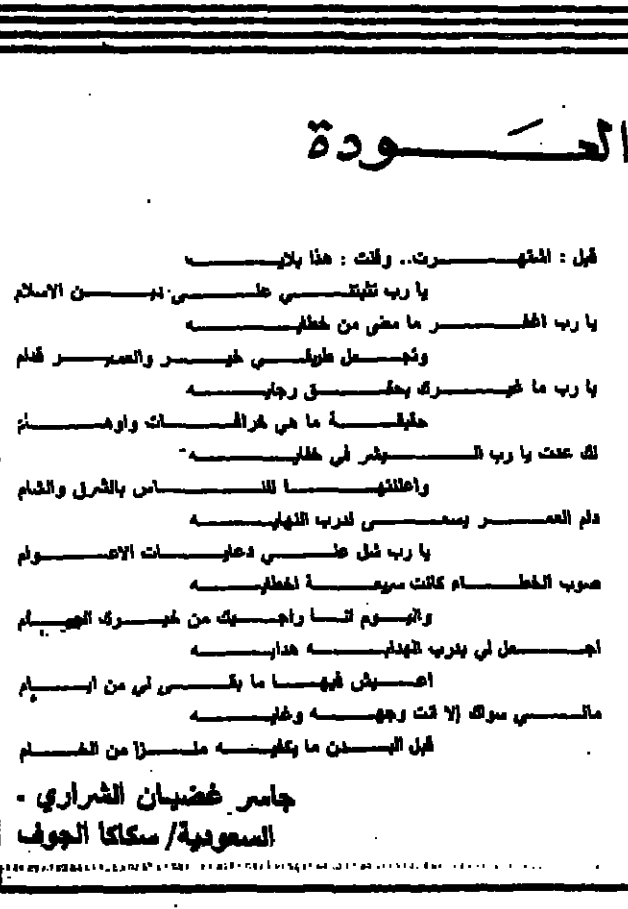 العـــودة
قبل : اشتهـــرت.. وقلت : هذا بلايـــه
يا رب تثبتنـــي علـــى ديـــن الاسلام
يا رب اغفـــر ما مضى من خطايـــه
وتجـــعل طريقـــي خيـــر والعمـــر قدام
يا رب ما غيـــرك يحقـــق رجايـــه
حقيقـــة ما هي خرافـــات واوهـــام
لك عدت يا رب الـــبشر في خفايـــه
واعلنتهـــا للنـــاس بالشرق والشام
دام العمـــر يسعـــى لدرب النهايـــه
يا رب شل عنـــي دعايـــات الاعـــوام
صوب الخطـــاء كانت سريعـــة اخطايـــه
واليـــوم انـــا راجـــيك من خيـــرك
اجـــعل لي بدرب الهدايـــه هدايـــه
اعـــيش فيهـــا ما بقـــى لي من ايـــام
مالـــي سواك إلا انت وجهـــه وغايـــه
قبل البـــدن ما يكفيـــه متـــرا من الخـــام
جاسر غضبان الشراري -
السعودية/ سكاكا الجوف